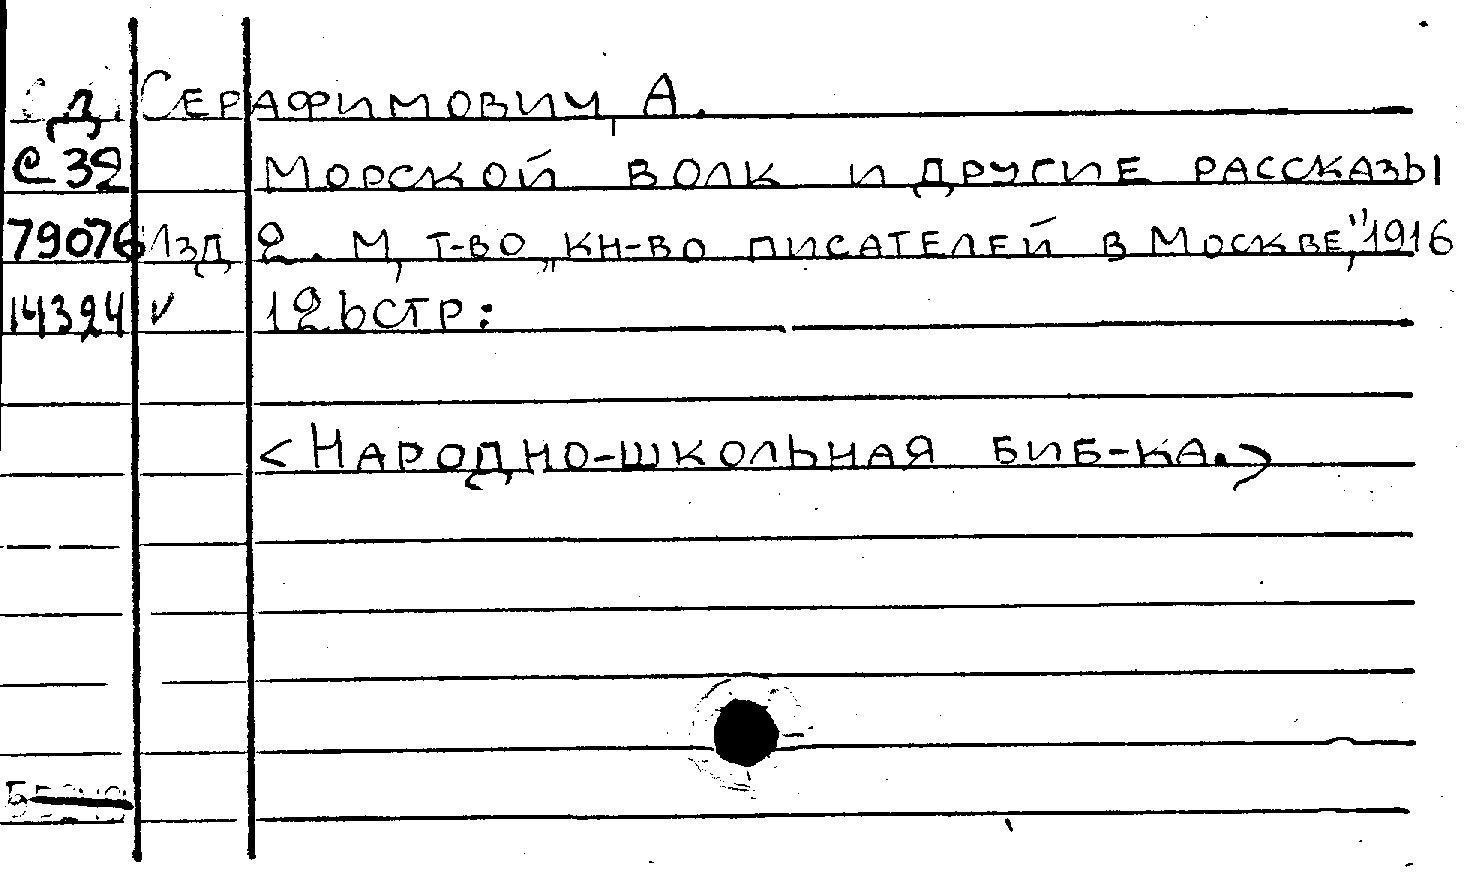 Д Серафимович, А.
С32 Морской волк и другие рассказы
79076 Изд 2. М, Т-во „Кн-во писателей в Москве", 1916
14324 ✓ 126 стр:
<Народно-школьная биб-ка.>